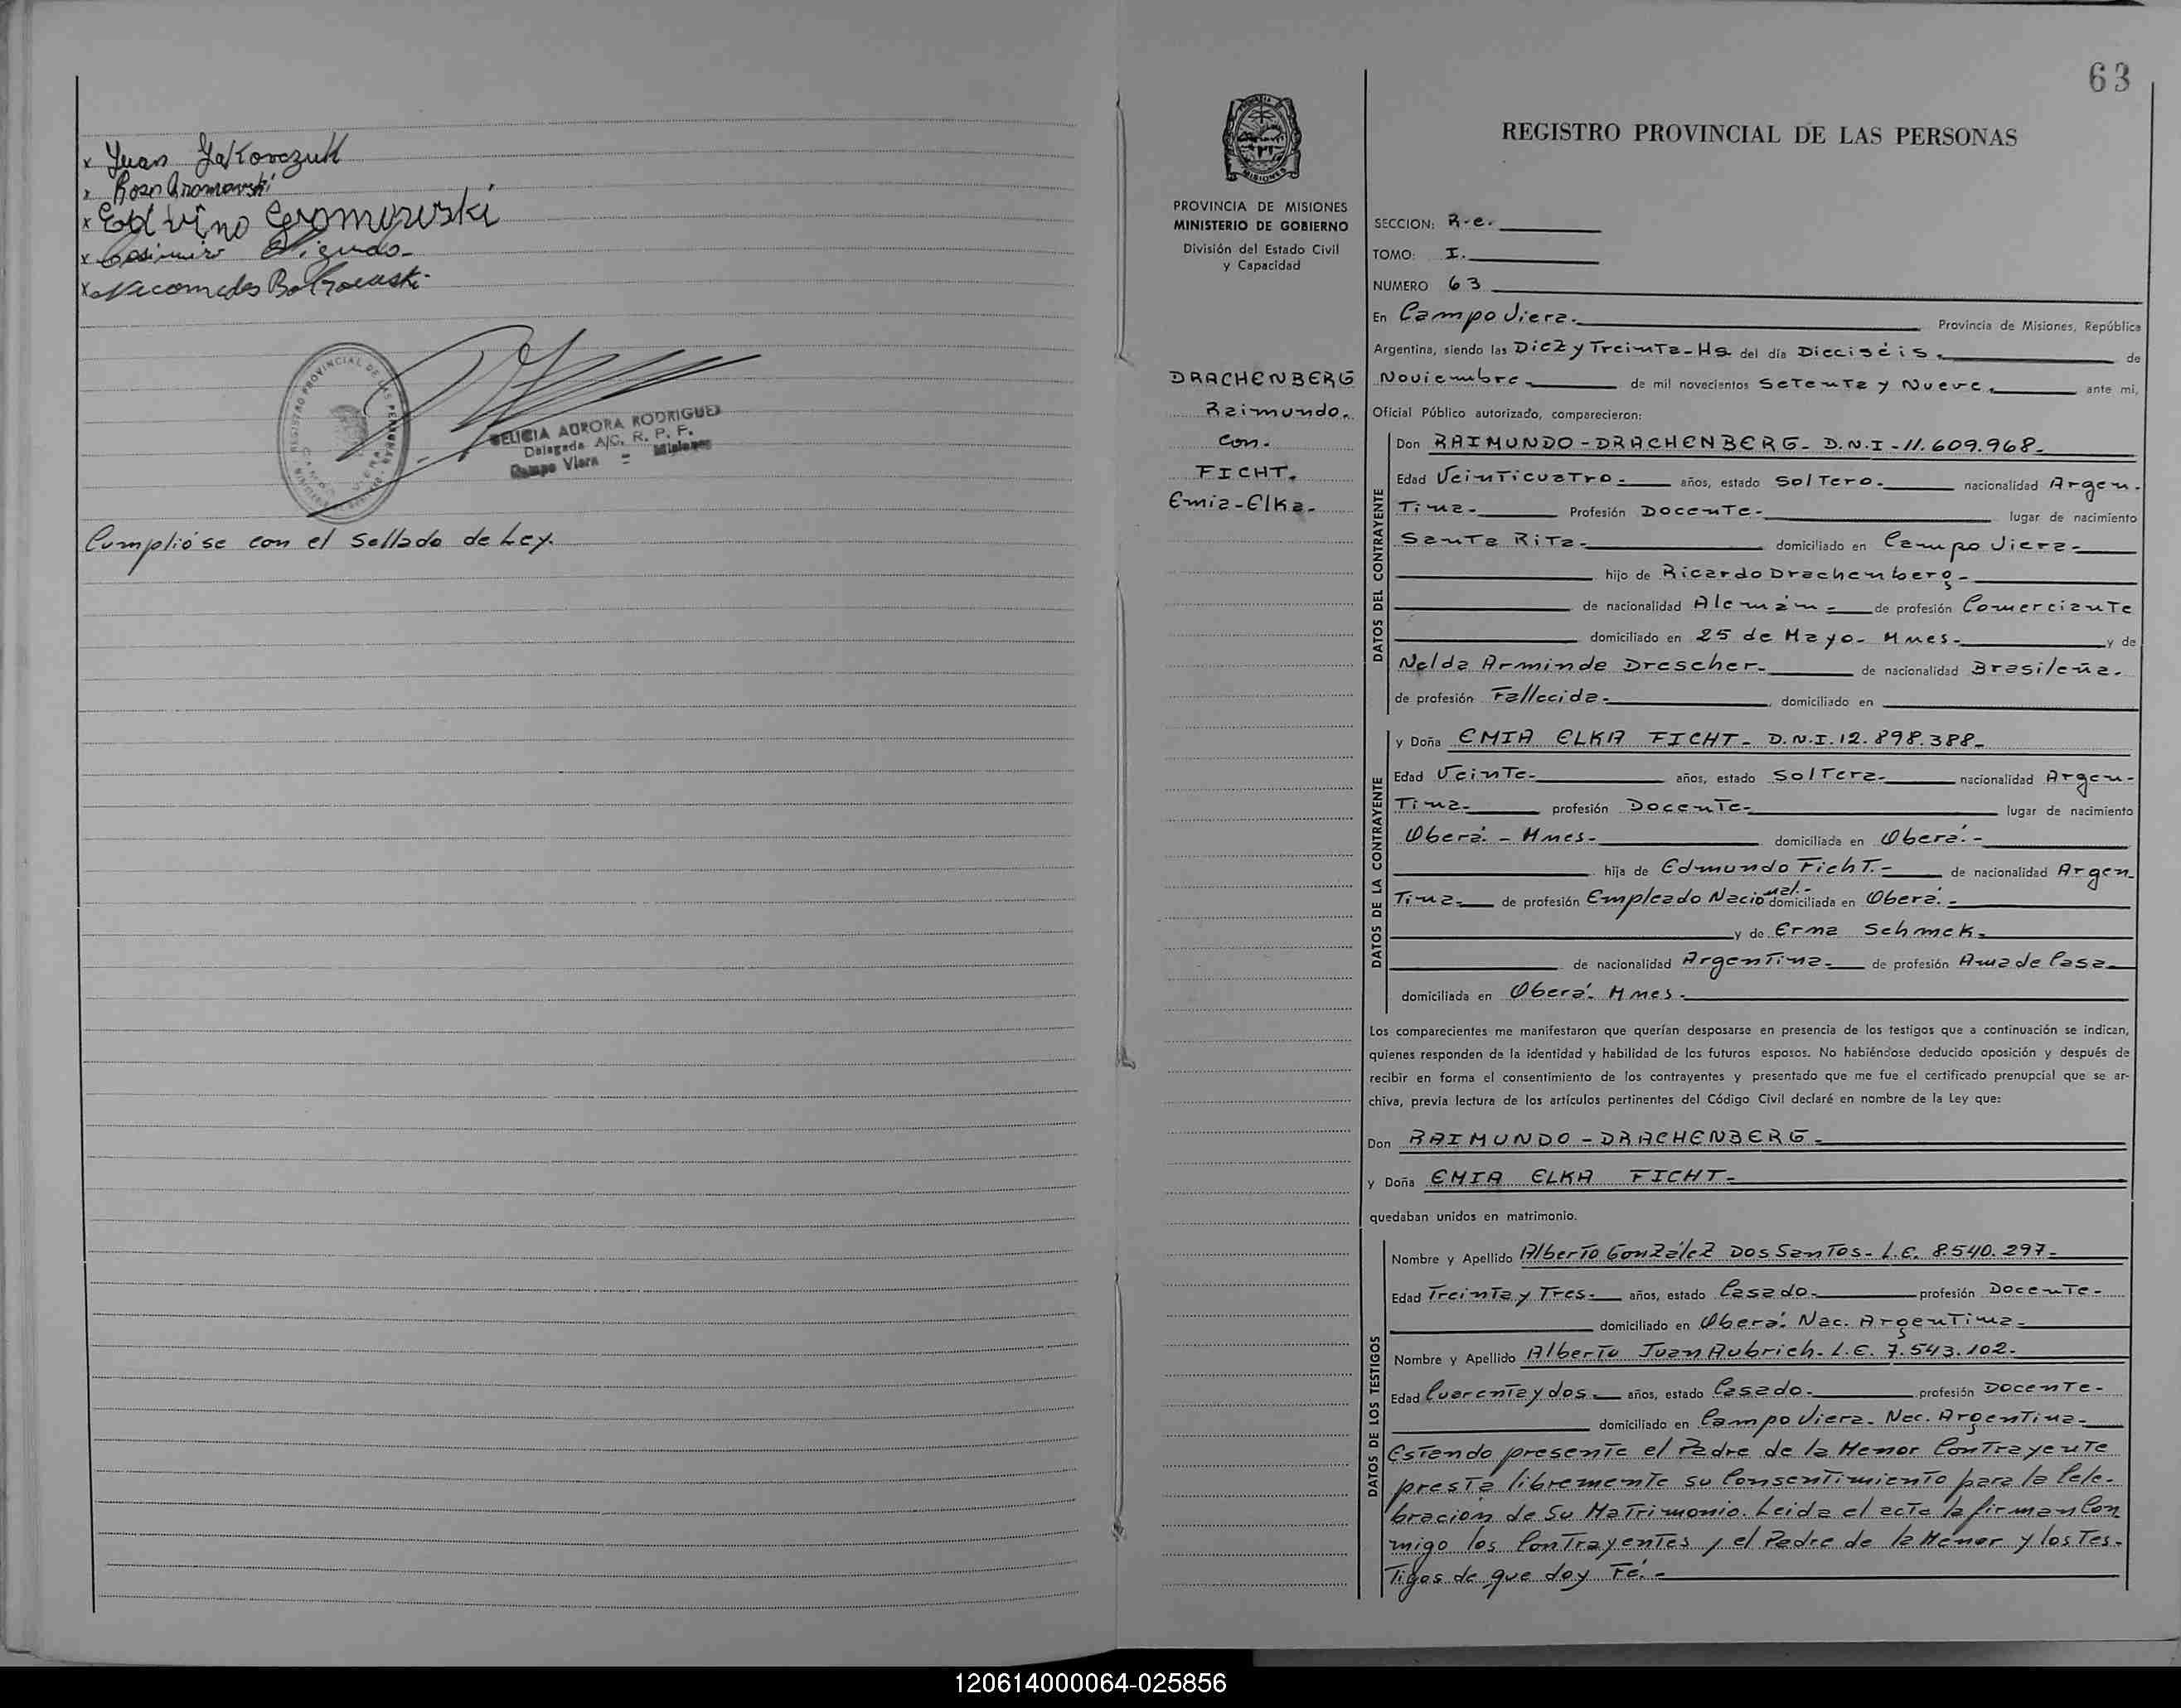 x Juan
x Rosa
x Edvino Gromowski
x Casimiro
x Nicomedes
REGISTRO PROVINCIAL DE LAS PERSONAS
CAMPO VIERA
MISIONES
AURORA RODRIGUEZ
Delegada A/C. R. P. F.
Campo Viera = Misiones
Cumplióse con el Sellado de Ley.
63
PROVINCIA DE MISIONES
MINISTERIO DE GOBIERNO
División del Estado Civil
y Capacidad
DRACHENBERG
Raimundo.
Con.
FICHT.
Emia-Elka.
REGISTRO PROVINCIAL DE LAS PERSONAS
SECCION: R.e.
TOMO: I.
NUMERO 63
En Campo Viera. Provincia de Misiones, República
Argentina, siendo las Diez y Treinta-Hs. del día Dieciséis. de
Noviembre. de mil novecientos Setenta y Nueve. ante mi,
Oficial Público autorizado, comparecieron:
DATOS DEL CONTRAYENTE
Don RAIMUNDO - DRACHENBERG. D.N.I - 11.609.968.
Edad Veinticuatro. años, estado Soltero. nacionalidad Argen-
Tina. Profesión Docente. lugar de nacimiento
Santa Rita. domiciliado en Campo Viera.
hijo de Ricardo Drachenberg.
de nacionalidad Alemán. de profesión Comerciante
domiciliado en 25 de Mayo. Mnes. y de
Nelda Arminde Drescher. de nacionalidad Brasileña.
de profesión Fallecida. domiciliado en
DATOS DE LA CONTRAYENTE
y Doña EMIA ELKA FICHT. D.N.I. 12.898.388.
Edad Veinte. años, estado Soltera. nacionalidad Argen-
Tina. profesión Docente. lugar de nacimiento
Oberá. - Mnes. domiciliada en Oberá.
hija de Edmundo Ficht. de nacionalidad Argen
Tina. de profesión Empleado Nacional. domiciliada en Oberá.
y de Erna Schmek.
de nacionalidad Argentina. de profesión Ama de Casa
domiciliada en Oberá. Mnes.
Los comparecientes me manifestaron que querían desposarse en presencia de los testigos que a continuación se indican,
quienes responden de la identidad y habilidad de los futuros esposos. No habiéndose deducido oposición y después de
recibir en forma el consentimiento de los contrayentes y presentado que me fue el certificado prenupcial que se ar-
chiva, previa lectura de los artículos pertinentes del Código Civil declaré en nombre de la Ley que:
Don RAIMUNDO - DRACHENBERG.
y Doña EMIA ELKA FICHT.
quedaban unidos en matrimonio.
DATOS DE LOS TESTIGOS
Nombre y Apellido Alberto González Dos Santos. L.E. 8.540.297.
Edad Treinta y Tres. años, estado Casado. profesión Docente.
domiciliado en Oberá. Nac. Argentina.
Nombre y Apellido Alberto Juan Aubrich. L.E. 7.543.102.
Edad Cuarenta y dos. años, estado Casado. profesión Docente.
domiciliado en Campo Viera. Nac. Argentina.
Estando presente el Padre de la Menor Contrayente
presta libremente su Consentimiento para la Cele-
bración de Su Matrimonio. Leida el acta la firman Con
migo los Contrayentes, el Padre de la Menor y los Tes-
Tigos de que doy Fé.
120614000064-025856